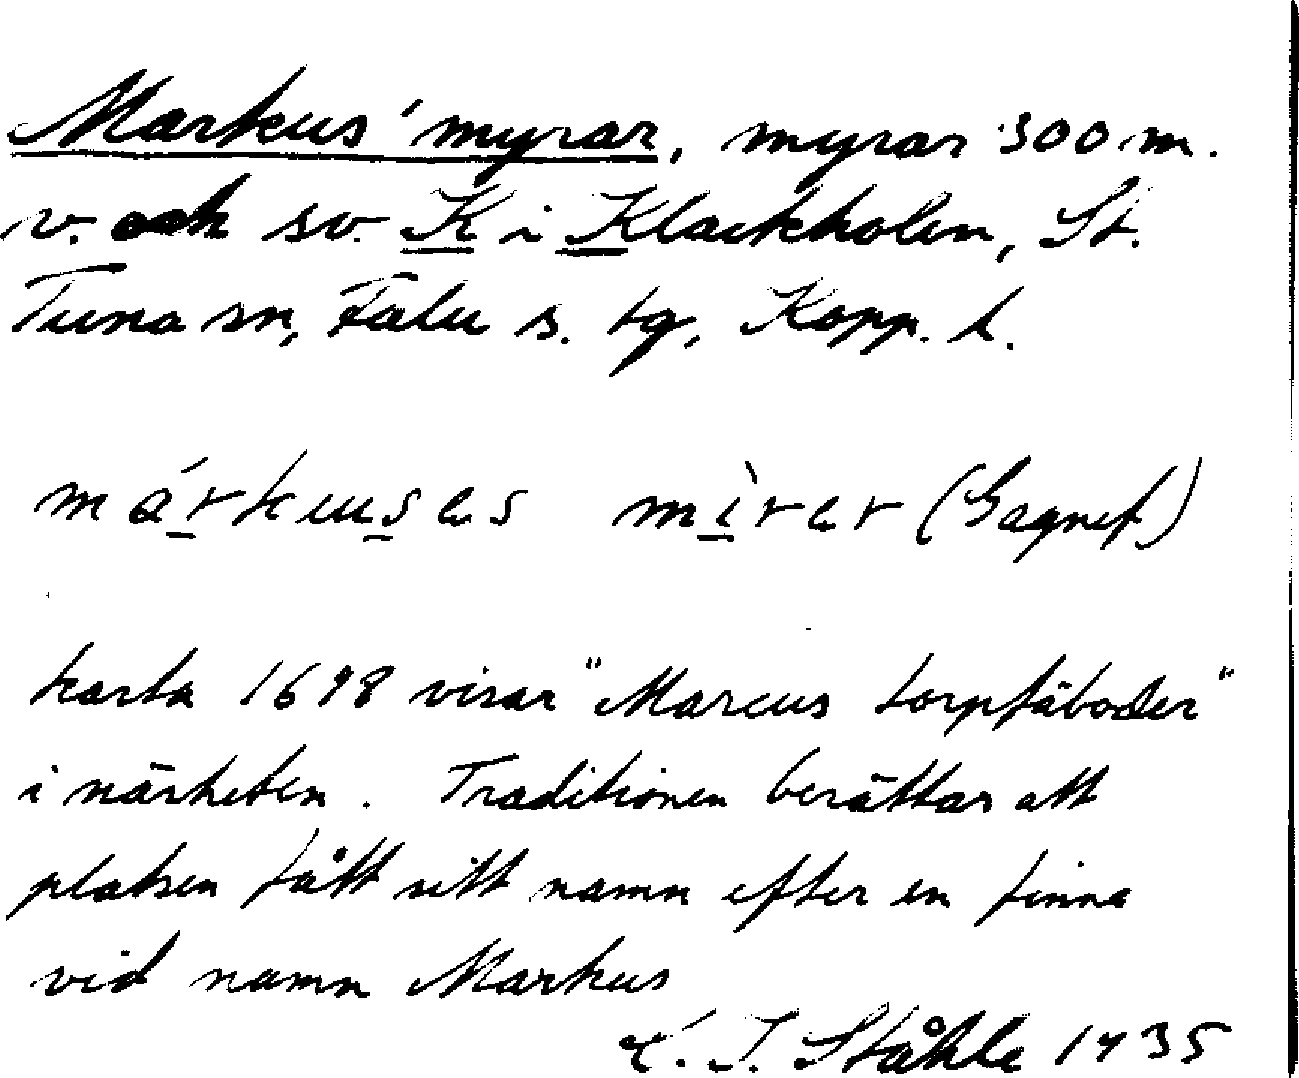 Markus' myrar, myrar 300 m.
v. och sv. K i Klackholen, St.
Tuna sn, Falu s. tg, Kopp. l.
márkuses mìrer (Gagnef)
karta 1698 visar "Marcus torpfäboder"
i närheten. Traditionen berättar att
platsen fått sitt namn efter en finne
vid namn Markus
C. I. Ståhle 1935